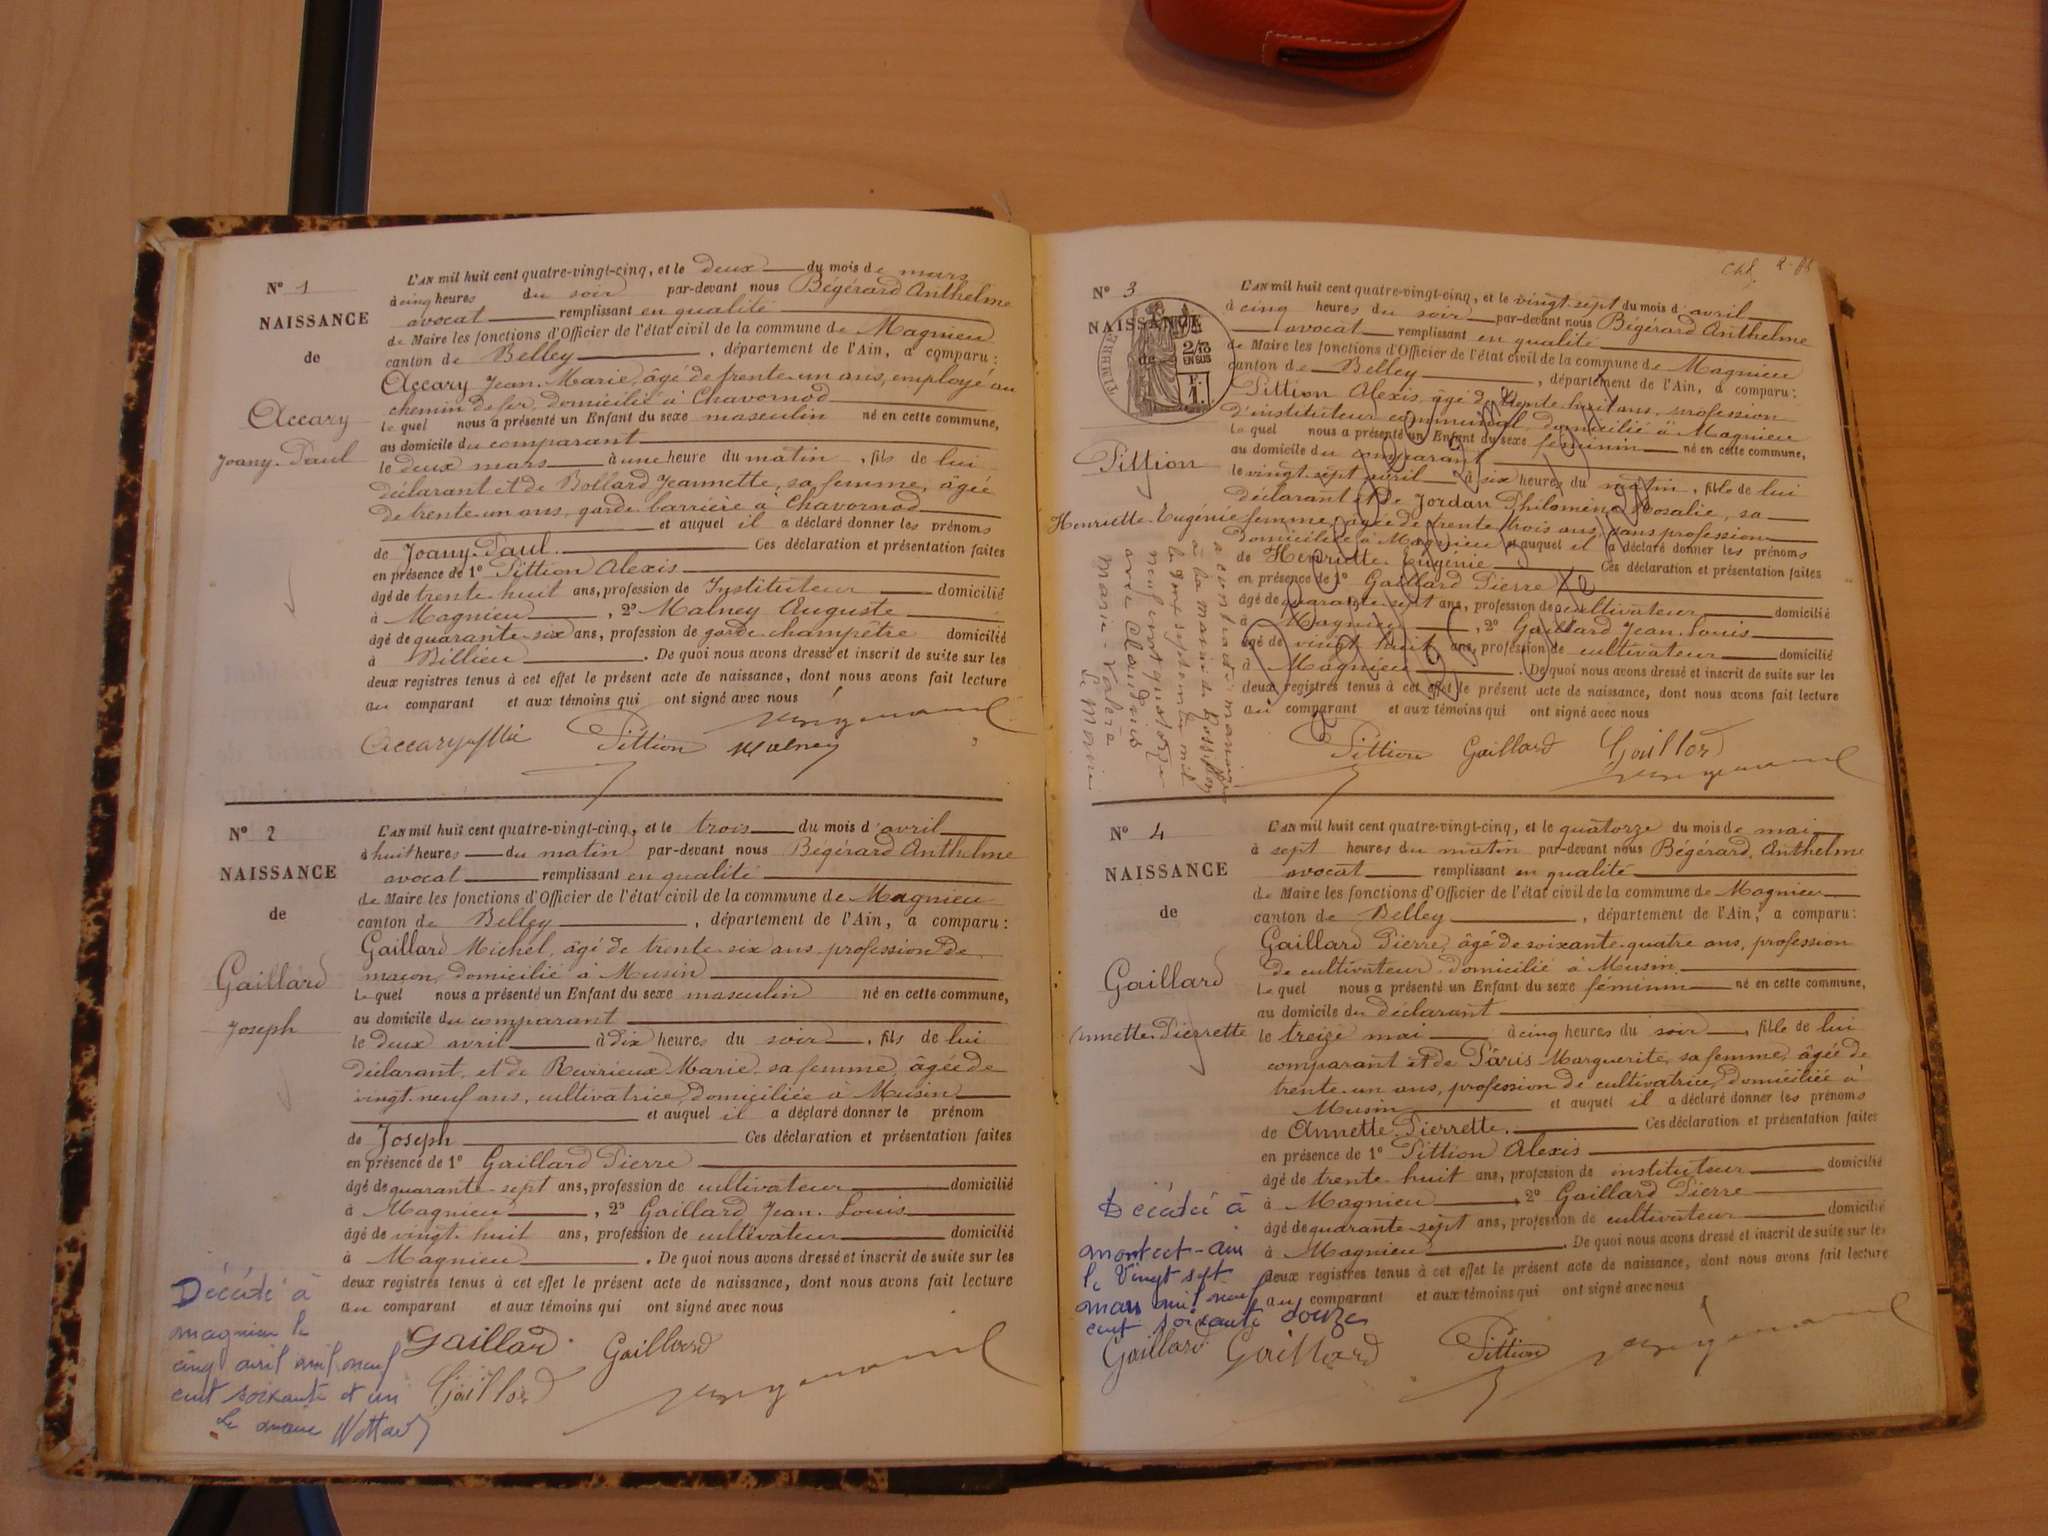 N° 1
NAISSANCE
de
Accary
Joany-Paul
L'AN mil huit cent quatre-vingt-cinq, et le deux du mois de mars
à cinq heures du soir par-devant nous Bégérard Anthelme
avocat remplissant en qualité
de Maire les fonctions d'Officier de l'état civil de la commune de Magnieu
canton de Belley, département de l'Ain, a comparu:
Accary Jean-Marie, âgé de trente-un ans, employé au
chemin de fer, domicilié à Chavornod
lequel nous a présenté un Enfant du sexe masculin né en cette commune,
au domicile du comparant
le deux mars à une heure du matin, fils de lui
déclarant et de Bollard Jeannette, sa femme, âgée
de trente-un ans, garde-barrière à Chavornod
et auquel il a déclaré donner les prénoms
de Joany-Paul. Ces déclaration et présentation faites
en présence de 1° Pittion Alexis
âgé de trente-huit ans, profession de Instituteur domicilié
à Magnieu, 2° Malney Auguste
âgé de quarante-six ans, profession de garde-champêtre domicilié
à Billieu. De quoi nous avons dressé et inscrit de suite sur les
deux registres tenus à cet effet le présent acte de naissance, dont nous avons fait lecture
au comparant et aux témoins qui ont signé avec nous
Accary Pittion Malney
N° 2
NAISSANCE
de
Gaillard
Joseph
L'AN mil huit cent quatre-vingt-cinq, et le trois du mois d'avril
à huit heures du matin par-devant nous Bégérard Anthelme
avocat remplissant en qualité
de Maire les fonctions d'Officier de l'état civil de la commune de Magnieu
canton de Belley, département de l'Ain, a comparu:
Gaillard Michel, âgé de trente-six ans, profession de
maçon, domicilié à Musin
lequel nous a présenté un Enfant du sexe masculin né en cette commune,
au domicile du comparant
le deux avril à dix heures du soir, fils de lui
déclarant, et de Revirieux Marie, sa femme, âgée de
vingt-neuf ans, cultivatrice, domiciliée à Musin
et auquel il a déclaré donner le prénom
de Joseph Ces déclaration et présentation faites
en présence de 1° Gaillard Pierre
âgé de quarante-sept ans, profession de cultivateur domicilié
à Magnieu, 2° Gaillard Jean-Louis
âgé de vingt-huit ans, profession de cultivateur domicilié
à Magnieu. De quoi nous avons dressé et inscrit de suite sur les
deux registres tenus à cet effet le présent acte de naissance, dont nous avons fait lecture
au comparant et aux témoins qui ont signé avec nous
Gaillard Gaillard
Gaillard
Décédé à
magnieu le
cinq avril mil neuf
cent soixante et un
Le maire
N° 3
NAISSANCE
de
TIMBRE
2/10
EN SUS
Pittion
Henriette-Eugénie
L'AN mil huit cent quatre-vingt-cinq, et le vingt-sept du mois d'avril
à cinq heures du soir par-devant nous Bégérard Anthelme
avocat remplissant en qualité
de Maire les fonctions d'Officier de l'état civil de la commune de Magnieu
canton de Belley, département de l'Ain, a comparu:
Pittion Alexis, âgé de trente-huit ans, profession
d'instituteur communal, domicilié à Magnieu
lequel nous a présenté un Enfant du sexe féminin né en cette commune,
au domicile du comparant
le vingt-sept avril à six heures du matin, fille de lui
déclarant et de Jordan Philomène Rosalie, sa
femme, âgée de trente-trois ans, sans profession
domiciliée à Magnieu et auquel il a déclaré donner les prénoms
de Henriette-Eugénie Ces déclaration et présentation faites
en présence de 1° Gaillard Pierre
âgé de quarante-sept ans, profession de cultivateur domicilié
à Magnieu, 2° Gaillard Jean-Louis
âgé de vingt-huit ans, profession de cultivateur domicilié
à Magnieu. De quoi nous avons dressé et inscrit de suite sur les
deux registres tenus à cet effet le présent acte de naissance, dont nous avons fait lecture
au comparant et aux témoins qui ont signé avec nous
Pittion Gaillard Gaillard
a contracté mariage
à la mairie de Rossillon
le septembre mil
neuf cent quatorze
avec Claudius
Marie-Valère
N° 4
NAISSANCE
de
Gaillard
Annette-Pierrette
L'AN mil huit cent quatre-vingt-cinq, et le quatorze du mois de mai
à sept heures du matin par-devant nous Bégérard, Anthelme
avocat remplissant en qualité
de Maire les fonctions d'Officier de l'état civil de la commune de Magnieu
canton de Belley, département de l'Ain, a comparu:
Gaillard Pierre, âgé de soixante-quatre ans, profession
de cultivateur domicilié à Musin
lequel nous a présenté un Enfant du sexe féminin né en cette commune,
au domicile du déclarant
le treize mai à cinq heures du soir, fille de lui
comparant et de Pâris Marguerite, sa femme, âgée de
trente-un ans, profession de cultivatrice, domiciliée à
Musin et auquel il a déclaré donner les prénoms
de Annette-Pierrette. Ces déclaration et présentation faites
en présence de 1° Pittion Alexis
âgé de trente-huit ans, profession de instituteur domicilié
à Magnieu 2° Gaillard Pierre
âgé de quarante-sept ans, profession de cultivateur domicilié
à Magnieu. De quoi nous avons dressé et inscrit de suite sur les
deux registres tenus à cet effet le présent acte de naissance, dont nous avons fait lecture
au comparant et aux témoins qui ont signé avec nous
Gaillard Gaillard Pittion
Décédée à
le vingt sept
mars mil neuf
cent soixante douze